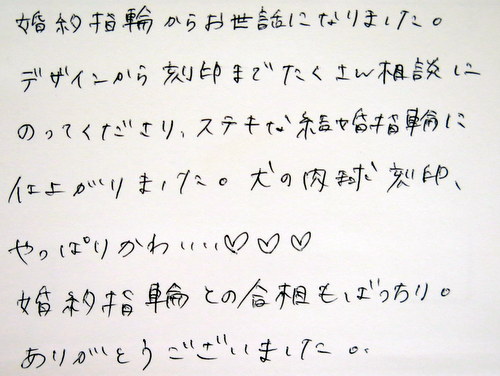 婚約指輪からお世話になりました。
デザインから刻印までたくさん相談に
のってくださり、ステキな結婚指輪に
仕上がりました。犬の肉球刻印、
やっぱりかわいい♡♡♡
婚約指輪との合相もばっちり。
ありがとうございました。